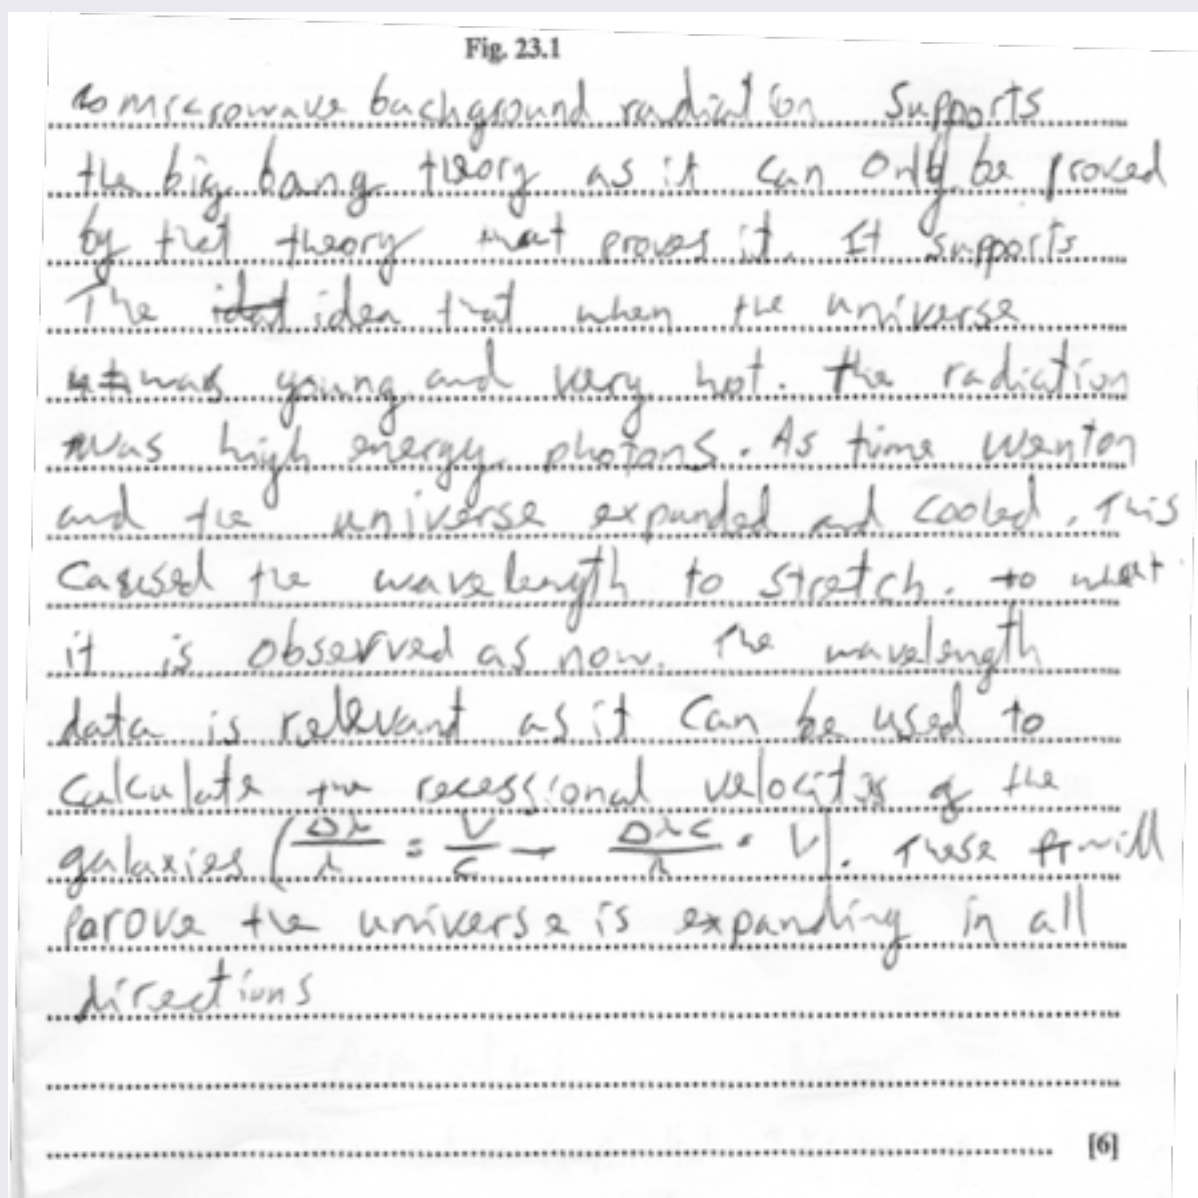 Fig. 23.1
microwave background radiation supports
the big bang theory as it can only be proved
by that theory that proves it. It supports
The idea that when the universe
was young and very hot. the radiation
was high energy photons. As time went on
and the universe expanded and cooled. This
caused the wavelength to stretch. to what
it is observed as now. The wavelength
data is relevant as it can be used to
calculate the recessional velocities of the
galaxies (Δλ/λ = V/c → Δλc/λ = V). These will
parove the universe is expanding in all
directions
[6]